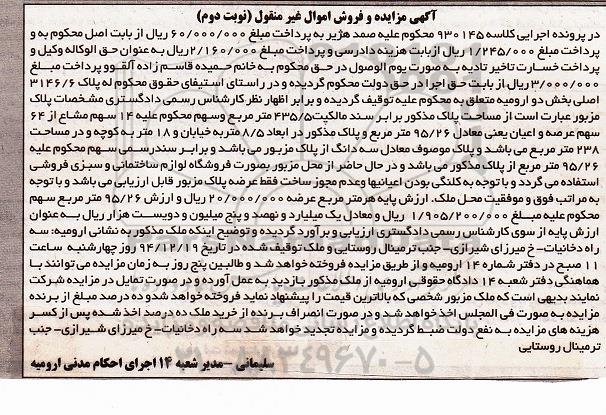 آگهی مزایده و فروش اموال غیر منقول (نوبت دوم)
در پرونده اجرایی کلاسه ۹۳۰۱۴۵ محکوم علیه صمد هژیر به پرداخت مبلغ ۶۰/۰۰۰/۰۰۰ ریال از بابت اصل محکوم به و
پرداخت مبلغ ۱/۲۴۵/۰۰۰ ریال از بابت هزینه دادرسی و پرداخت مبلغ ۲/۱۶۰/۰۰۰ ریال به عنوان حق الوکاله وکیل و
پرداخت خسارت تاخیر تادیه به صورت یوم الوصول در حق محکوم به خانم حمیده قاسم زاده آلقوو پرداخت مبلغ
۳/۰۰۰/۰۰۰ ریال از بابت حق اجرا در حق دولت محکوم گردیده و در راستای استیفای حقوق محکوم له پلاک ۳۱۴۶/۶
اصلی بخش دو ارومیه متعلق به محکوم علیه توقیف گردیده و برابر اظهار نظر کارشناس رسمی دادگستری مشخصات پلاک
مزبور عبارت است از مساحت پلاک مذکور برابر سند مالکیت ۴۳۵/۵ متر مربع وسهم محکوم علیه ۱۴ سهم مشاع از ۶۴
سهم عرصه و اعیان یعنی معادل ۹۵/۲۶ متر مربع و پلاک مذکور در ابعاد ۸/۵ متر به خیابان و ۱۸ متر به کوچه و در مساحت
۲۳۸ متر مربع می باشد و پلاک موصوف معادل سه دانگ از پلاک مزبور می باشد و برابر سندرسمی سهم محکوم علیه
۹۵/۲۶ متر مربع از پلاک مذکور می باشد و در حال حاضر از محل مزبور بصورت فروشگاه لوازم ساختمانی و سبزی فروشی
استفاده می گردد و با توجه به کلنگی بودن اعیانیها وعدم مجوز ساخت فقط عرضه پلاک مزبور قابل ارزیابی می باشد و با توجه
به مراتب فوق و موفقیت محل ملک. ارزش پایه هر متر مربع عرصه ۲۰/۰۰۰/۰۰۰ ریال و ارزش ۹۵/۲۶ متر مربع سهم
محکوم علیه مبلغ ۱/۹۰۵/۲۰۰/۰۰۰ ریال و معادل یک میلیارد و نهصد و پنج میلیون و دویست هزار ریال به عنوان
ارزش پایه از سوی کارشناس رسمی دادگستری ارزیابی و برآورد گردیده و توضیح اینکه ملک مذکور به نشانی ارومیه: سه
راه دخانیات- خ میرزای شیرازی- جنب ترمینال روستایی و ملک توقیف شده در تاریخ ۹۴/۱۲/۱۹ روز چهارشنبه ساعت
۱۱ صبح در دفتر شماره ۱۴ ارومیه و از طریق مزایده فروخته خواهد شد و طالبین پنج روز به زمان مزایده می توانند با
هماهنگی دفتر شعبه ۱۴ دادگاه حقوقی ارومیه از ملک مذکور بازدید به عمل آورده و در صورت تمایل در مزایده شرکت
نمایند بدیهی است که ملک مزبور شخصی که بالاترین قیمت را پیشنهاد نماید فروخته خواهد شد و ده درصد مبلغ از برنده
مزایده به صورت فی المجلس اخذ خواهد شد و در صورت انصراف برنده از خرید ملک ده درصد اخذ شده پس از کسر
هزینه های مزایده به نفع دولت ضبط گردیده و مزایده تجدید خواهد شد سه راه دخانیات- خ میرزای شیرازی- جنب
ترمینال روستایی
سلیمانی -مدیر شعبه ۱۴ اجرای احکام مدنی ارومیه